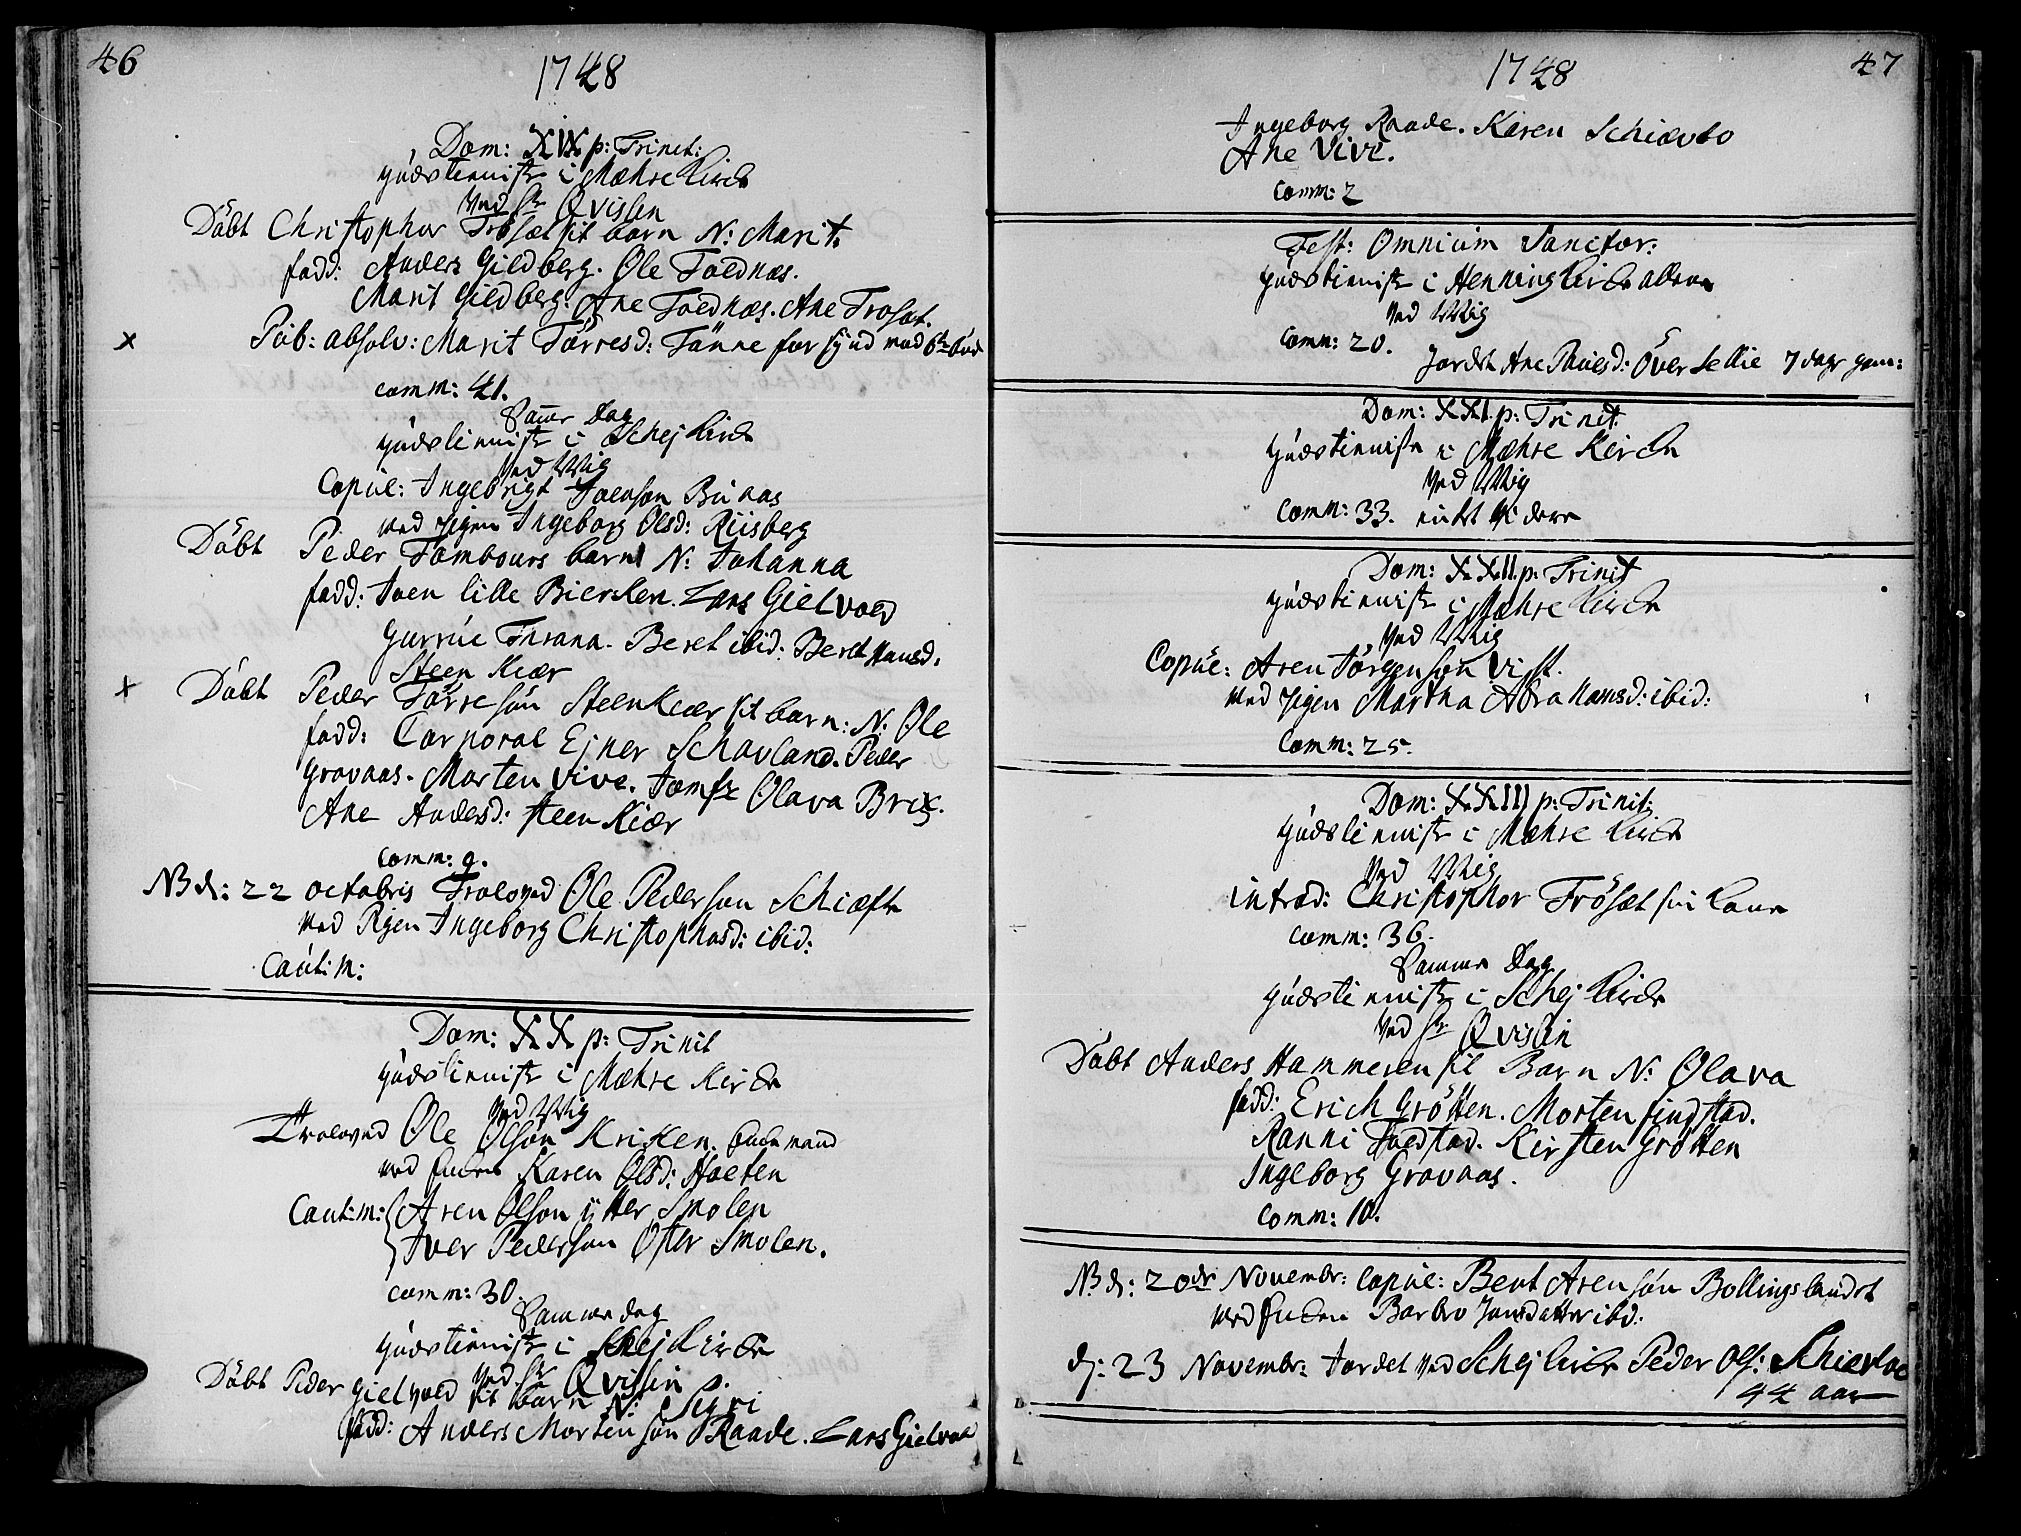 46
1748
Dom: XIX p: Trinit:
gudstienist i Mæhre Kirche
Ved Hr Qvislin
Döbt Christopher Frösæt sit barn N: Marit.
fadd: Anders Gieldberg. Ole Foldnæs.
Marit Gieldberg. Ane Foldnæs. Ane Frösæt.
x Pub: absolv: Marit Törresd: Tänne for synd mod 6te bud
comm: 41.
Samme Dag
gudstieniste i Schej Kirche
Ved Wig
Copul: Ingebrigt Joenson Buaas
med pigen Ingeborg Olsd: Riisberg
Döbt Peder Tambours barn N: Johanna
fadd: Joen lille Bierken. Lars Gielvold
Gurrue Thrana. Beret ibid: Beret Hansd.
Steen Kiær
x Döbt Peder Törresön SteenKiær sit barn: N: Ole
fadd: Corporal Ejner Schavland. Peder
Gravaas. Morten Vive. Jomfr Olava Brix.
Ane Andersd: steen Kiær
comm: 9.
NB d: 22 octobris Troloved Ole Pederson Schiæfte
med Pigen Ingeborg Christophersd: ibid:
Caut: M:
Dom: XX p: Trinit
gudstienist i Mæhre Kirche
Ved Wig
Troloved Ole Olsön Kriken. Enkemand
med Enken Karen Olsd: Hoeten
Caut: m: Aren Olson ytter Smolen
Iver Pederson Öster Smolen.
comm: 30.
Samme dag
gudstienist i Schej Kirche
Ved Hr Qvislin
Döbt Peder Gielvold sit barn N: Sigri
fadd: Anders Mortensön Raade. Lars Gielvold
1748
47
Ingeborg Raade. Karen Schiævlo
Ane Vive.
comm: 2
Fest: Omnium Sanctor:
gudstienist i Henning Kirche allene
Ved Wig
comm: 20.
Jordet Ane Paulsd: Över Lellie 7 dage gam:
Dom: XXI p: Trinit
gudstieniste i Mæhre Kirche
Ved Wig
comm: 33. intet videre
Dom: XXII p: Trinit
gudstienist i Mæhre Kirche
Ved Wig
Copul: Aren Jörgenson Vist.
med pigen Martha Abrahamsd: ibid:
Comm: 25.
Dom: XXIII p: Trinit:
gudstieniste i Mæhre Kirche
Ved Wig
introd: Christopher Frösæt sin Kone
comm: 36.
Samme Dag
gudstienist i Schej Kirche
Ved Hr Qvislin
Döbt Anders Hammeren sit Barn N: Olava
fadd: Erich Grötten. Morten findstad.
Ranni Foldstad. Kirsten Grötten
Ingeborg Gravaas.
comm: 10.
NB d: 20de Novembr: Copul: Bent Arensön Bollingslandet
med Enken Barbro Jonsdatter ibid:
d: 23 Novembr: Jordet ved Schej Kirche Peder Ols: Schiævloe
44 aar